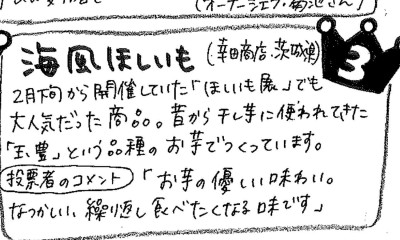 (オーナーシェフ・菊池さん)
海風ほしいも (幸田商店・茨城県) 3
2月下旬から開催していた「ほしいも展」でも
大人気だった商品。昔から干し芋に使われてきた
「玉豊」という品種のお芋でつくっています。
投票者のコメント 「お芋の優しい味わい。
なつかしい、繰り返し食べたくなる味です」